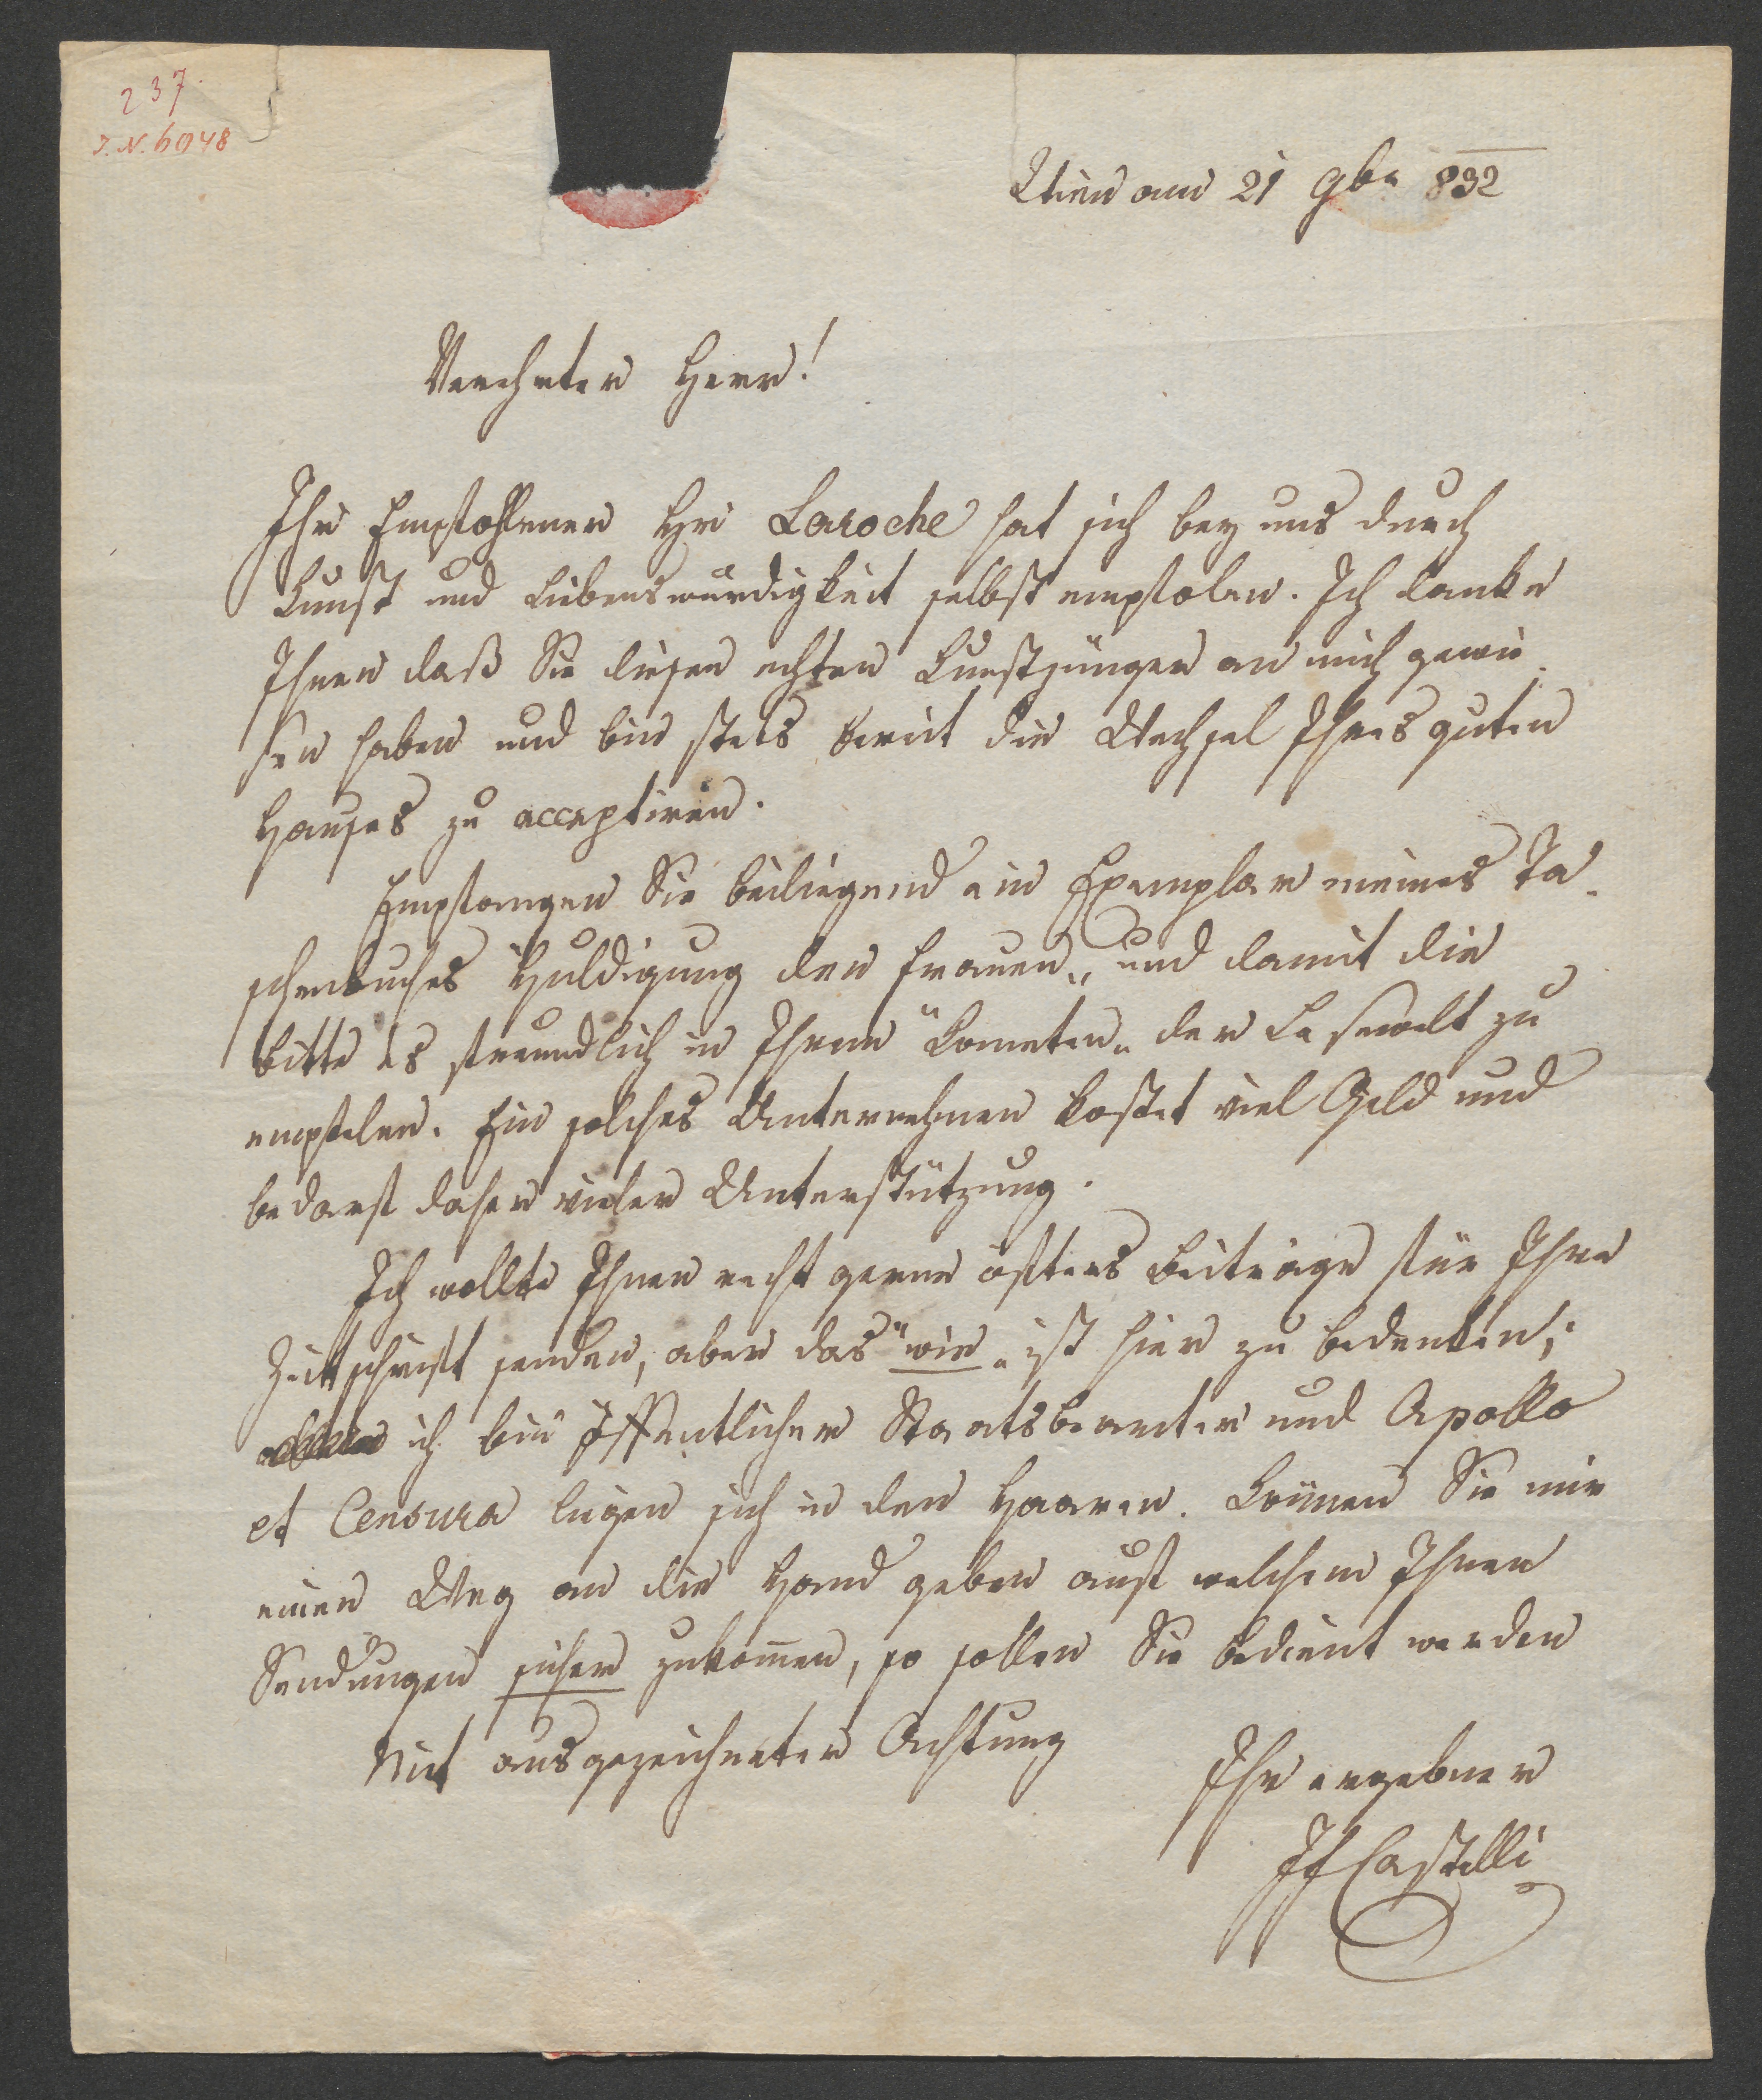 237.
I.N. 6048
Wien am 21 9br 832
Verehrter Herr!
Ihr Empfohlener Hr Laroche hat sich bey uns durch
Kunst und Liebenswürdigkeit selbst empfolen. Ich danke
Ihnen daß Sie diesen echten Kunstjünger an mich gewie-
sen haben und bin stets bereit die Wechsel Ihres guten
Hauses zu acceptiren.
Empfangen Sie beiliegend ein Exemplar meines Ta-
schenbuches Huldigung den Frauen„ und damit die
bitte es freundlich in Ihrem "Kometen„ der Lesewelt zu
empfelen. Ein solches Unternehmen kostet viel Geld und
bedarf daher vieler Unterstützung.
Ich wollte Ihnen recht gerne öfters Beiträge für Ihre
Zeitschrift senden, aber das "wie„ ist hier zu bedenken;
ich bin öffentlicher Staatsbeamter und Apollo
et Censura liegen sich in den Haaren. Können Sie mir
einen Weg an die Hand geben auf welchem Ihnen
Sendungen sicher zukom̅en, so sollen Sie bedient werden
Mit ausgezeichneter Achtung
Ihr ergebner
IF Castelli